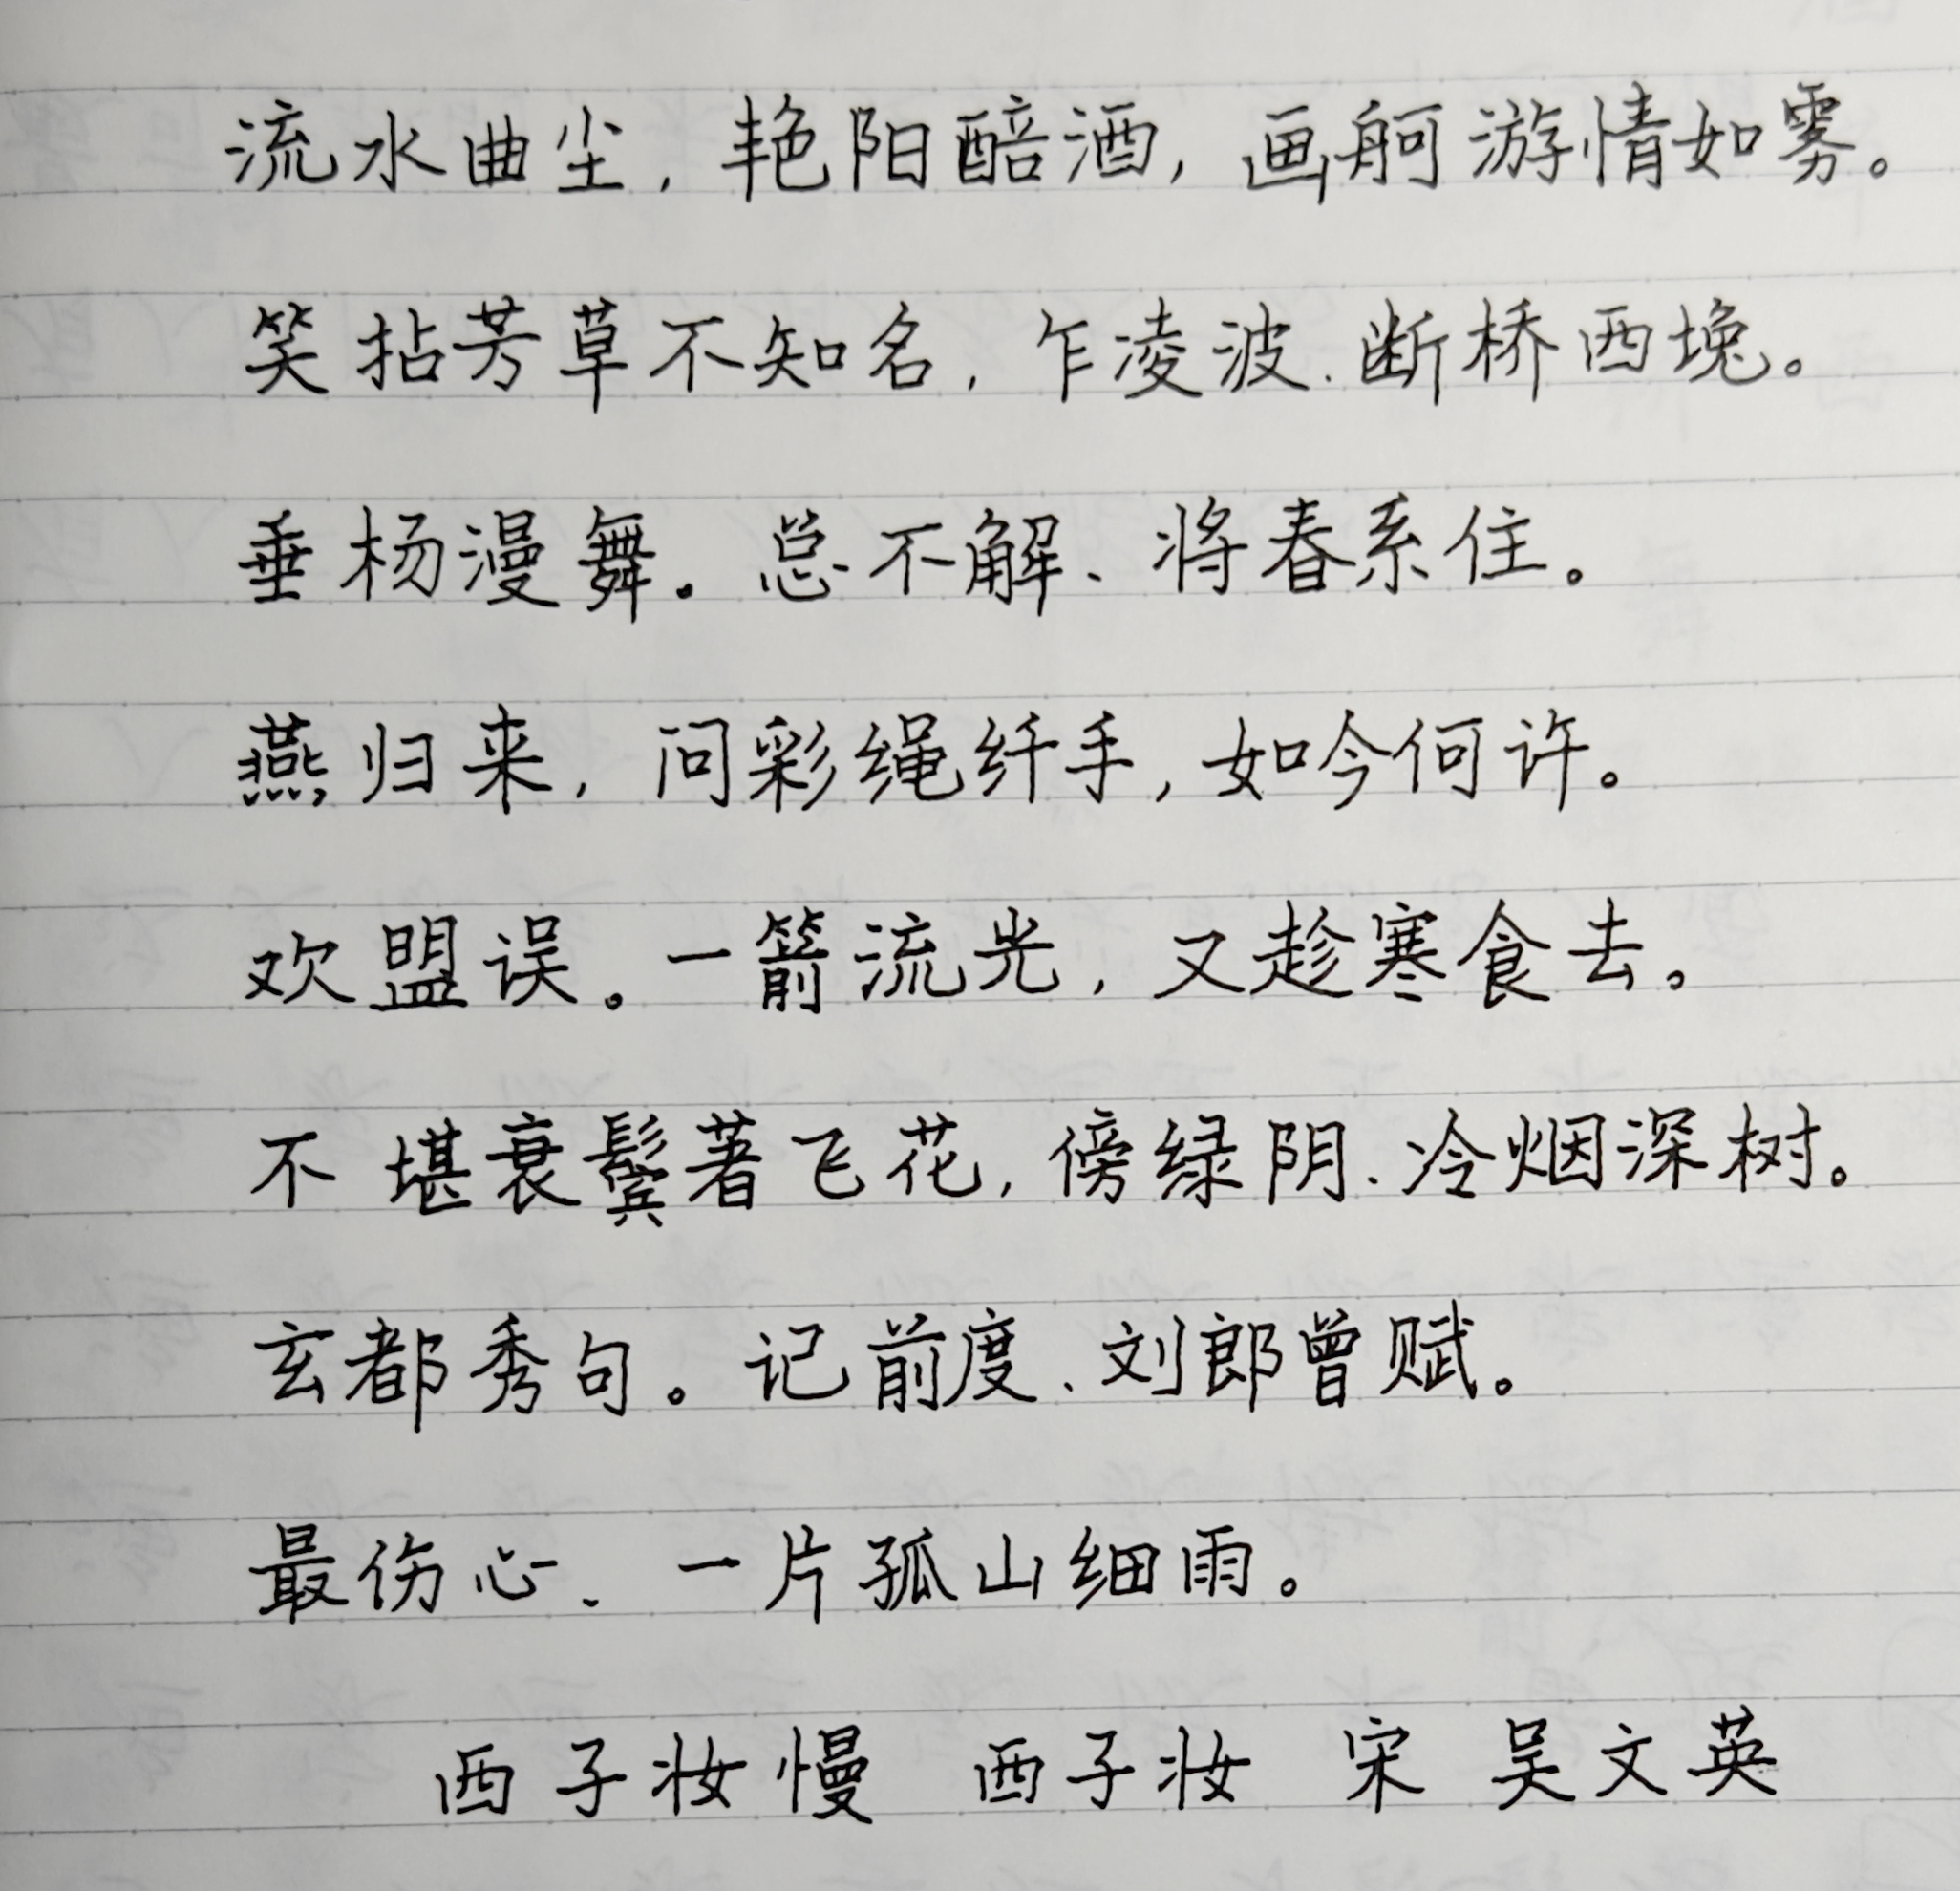 流水曲尘，艳阳醅酒，画舸游情如雾。
笑拈芳草不知名，乍凌波、断桥西堍。
垂杨漫舞。总不解、将春系住。
燕归来，问彩绳纤手，如今何许。
欢盟误。一箭流光，又趁寒食去。
不堪衰鬓著飞花，傍绿阴、冷烟深树。
玄都秀句。记前度、刘郎曾赋。
最伤心、一片孤山细雨。
西子妆慢 西子妆 宋 吴文英